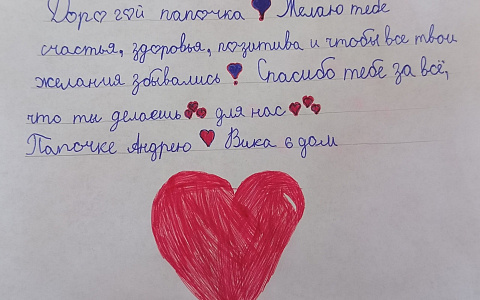 Дорогой папочка Желаю тебе
счастья, здоровья, позитива и чтобы все твои
желания збывались Спасибо тебе за всё,
что ты делаешь для нас
Папочке Андрею Вика в дом